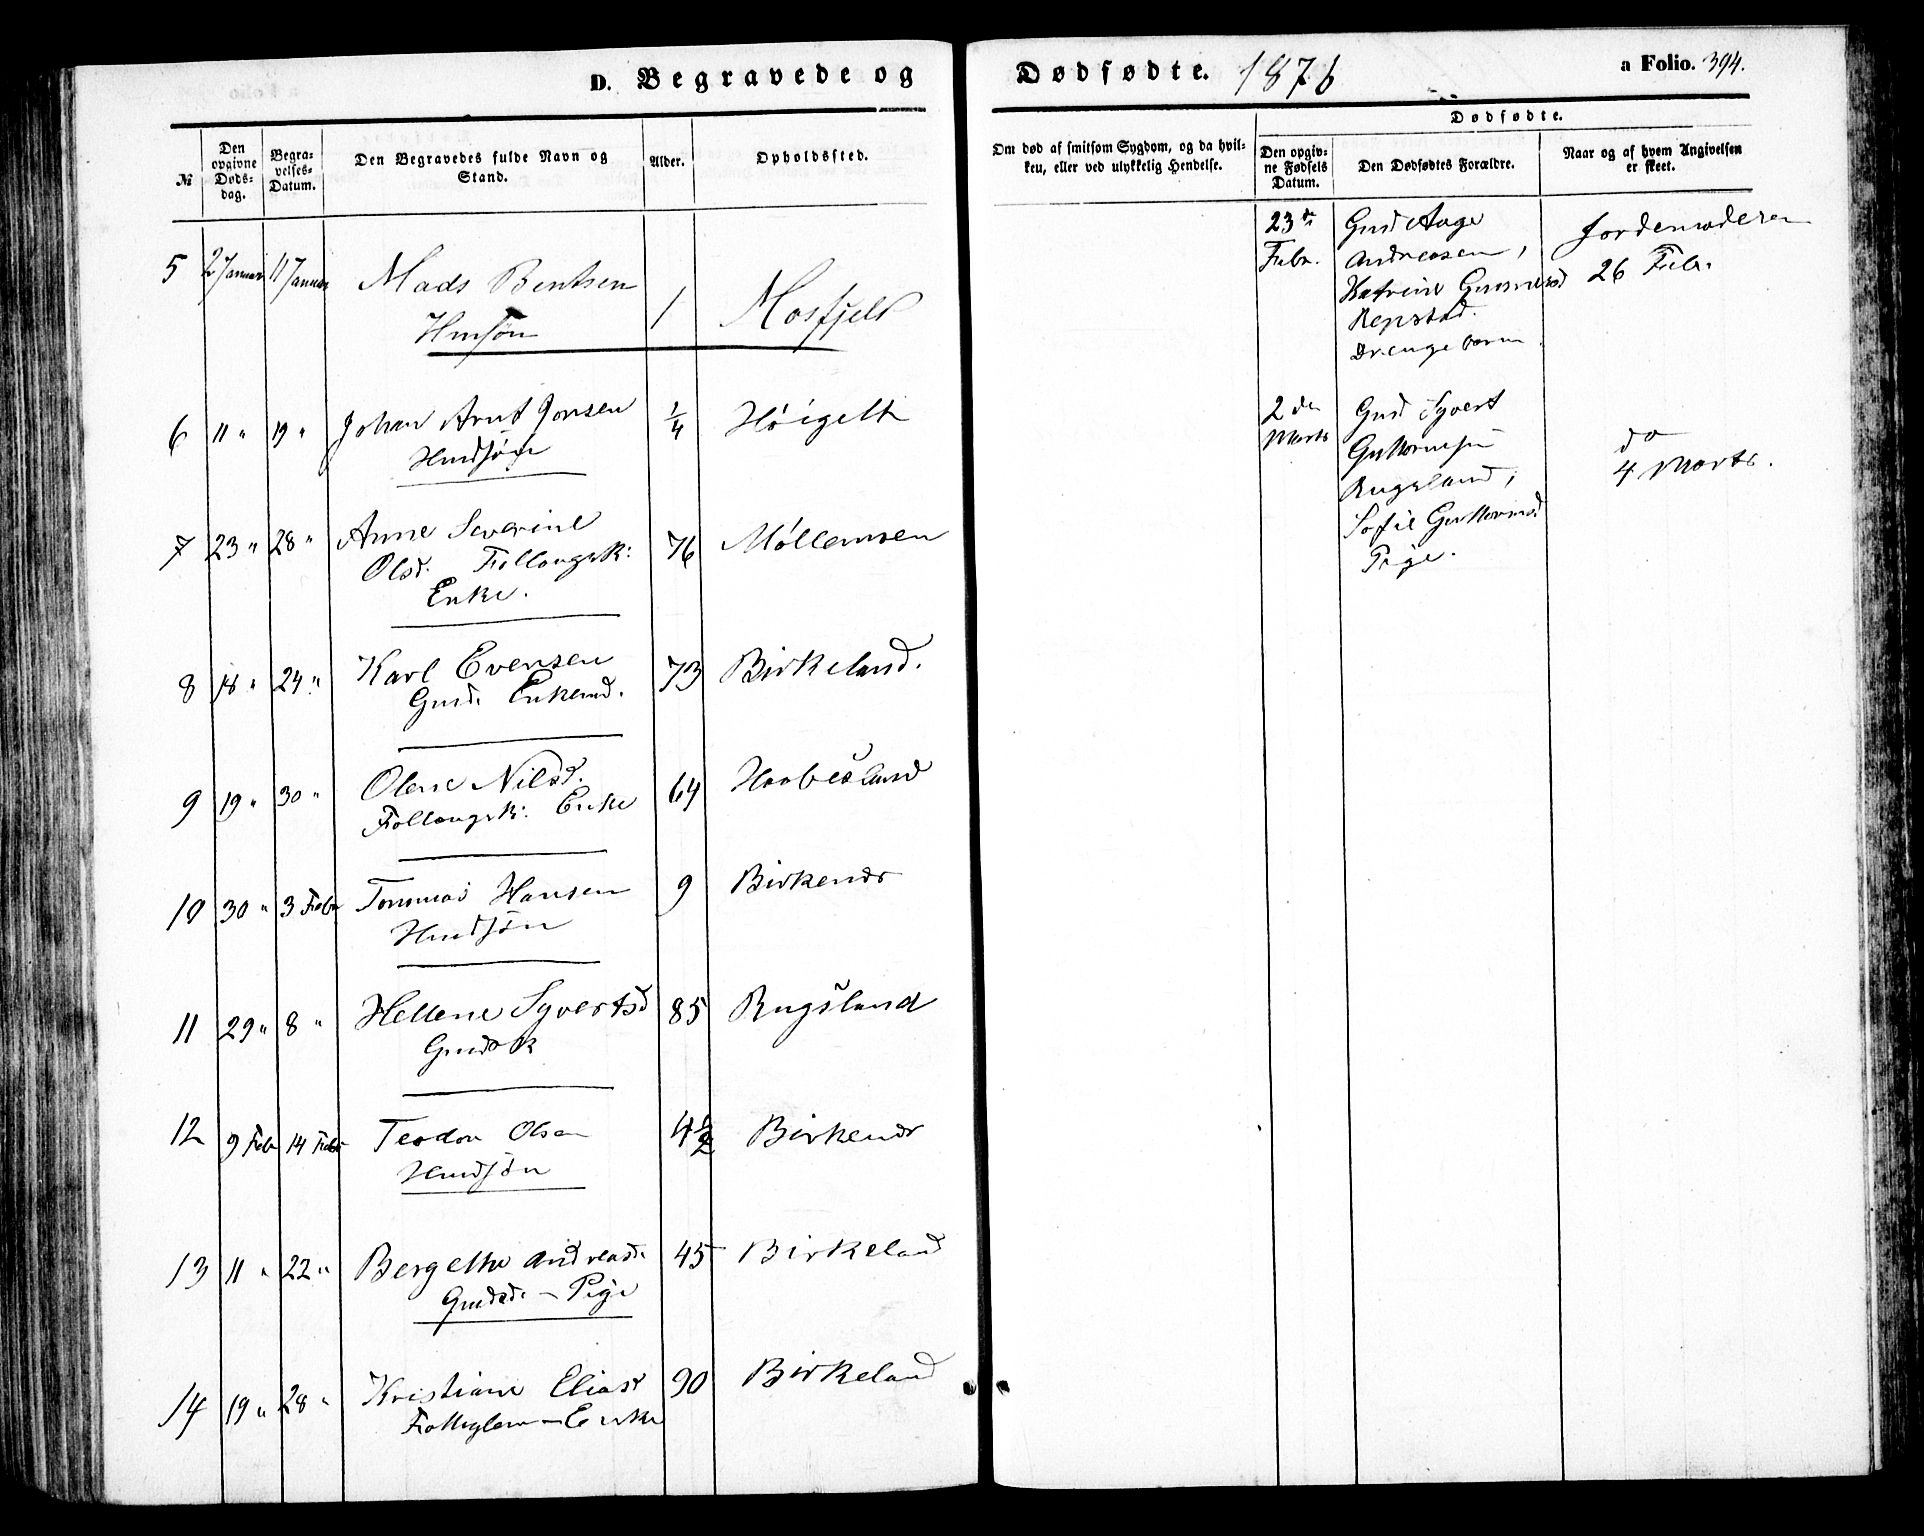 D. Begravede og
Dødfødte. 1876
a Folio. 394.
№
Den opgivne Døds-dag.
Begra-velses-Datum.
Den Begravedes fulde Navn og Stand.
Alder.
Opholdssted.
Om død af smitsom Sygdom, og da hvil-
ken, eller ved ulykkelig Hendelse.
Dødfødte.
Den opgiv-ne Fødsels Datum.
Den Dødfødtes Forældre.
Naar og af hvem Angivelsen er skeet.
5 2 Januar 11 Januar Mads Bentsen 1 Mosfjeld
Hmsøn
6 11 " 19 " Johan Arnt Jonsen 1/4 Høigelt
Hmdsøn
7 23 " 28 " Anne Severine 76 Møllemoen
Olsd. Follaugsk:
Enke.
8 18 " 24 " Karl Evensen 73 Birkeland.
Gmd. Enkemd.
9 19 " 30 " Olene Nilsd. 64 Haabesland
Follaugsk: Enke
10 30 " 3 Febr Tommas Hansen 9 Birkenes
Hmdsøn
11 29 " 8 " Hellene Syvertsd 85 Rugsland
Gmdsk
12 9 Febr 14 Febr Teodor Olsen 4 1/2 Birkenes
Hmdsøn
13 11 " 22 " Bergethe Andreasd. 45 Birkeland
Gmdsd. - Pige
14 19 " 28 " Kristiane Eliasd 90 Birkeland
Enke
23de Febr.
Gmd Aage
Andreasen,
Katrine Gunnersd
Repstad.
Drengebarn
Jordemoderen
26 Febr.
2den Marts
Gmd Syvert
Guttormsen
Rugsland,
Sofie Guttormsd
Pige.
do
4 Marts.